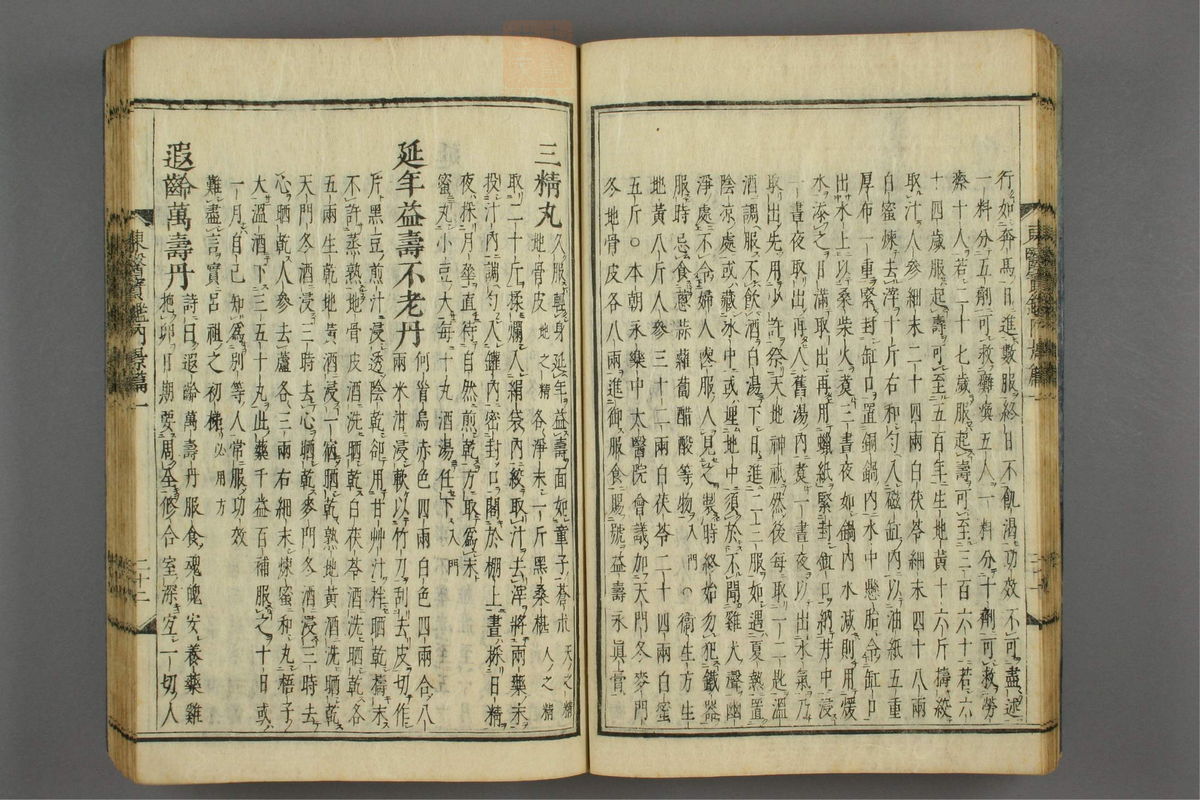 行如奔馬日進數服終日不飢渴功效不可盡述
一料分五劑可救癱瘓五人一料分十劑可救勞
瘵十人若二十七歲服起壽可至三百六十若六
十四歲服起壽可至五百年生地黃十六斤擣絞
取汁人參細末二十四兩白茯苓細末四十八兩
白蜜煉去滓十斤右和勻入磁缸內以油紙五重
厚布一重緊封缸口置銅鍋內水中懸胎令缸口
出水上以桑柴火煮三晝夜如鍋內水減則用煖
水添之日滿取出再用蠟紙緊封缸口納井中浸
一晝夜取出再入舊湯內煮一晝夜以出水氣乃
取出先用少許祭天地神祇然後每取一二匙溫
酒調服不飲酒白湯下日進二三服如遇夏熱置
陰涼處或藏氷中或埋地中須於不聞雞犬聲幽
淨處不令婦人喪服人見之製時終始勿犯鐵器
服時忌食蔥蒜蘿蔔醋酸等物入門○衛生方生
地黃八斤人參三十二兩白茯苓二十四兩白蜜
五斤○本朝永樂中太醫院會議加天門冬麥門
冬地骨皮各八兩進御服食賜號益壽永眞膏
三精丸久服輕身延年益壽面如童子蒼朮天之精
地骨皮地之精各淨末一斤黑桑椹人之精
取二十斤揉爛入絹袋內絞取汁去滓將兩藥末
投汁內調勻入罐內密封口閣於棚上晝採日精
夜採月華直待自然煎乾方取爲末
蜜丸小豆大每十丸酒湯任下入門
延年益壽不老丹何首烏赤色四兩白色四兩合八
兩米泔浸軟以竹刀刮去皮切作
片黑豆煎汁浸透陰乾卻用甘艸汁拌晒乾擣末
不許蒸熟地骨皮酒洗晒乾白茯苓酒洗晒乾各
五兩生乾地黃酒浸一宿晒乾熟地黃酒洗晒乾
天門冬酒浸三時去心晒乾麥門冬酒浸三時去
心晒乾人參去蘆各三兩右細末煉蜜和丸梧子
大溫酒下三五十丸此藥千益百補服之十日或
一月自己知爲別等人常服功效
難盡言實呂祖之初梯必用方
遐齡萬壽丹詩曰遐齡萬壽丹服食魂魄安養藥雞
抱卵日期要周全修合室深宏一切人
東醫寶鑑內景篇一
二十二